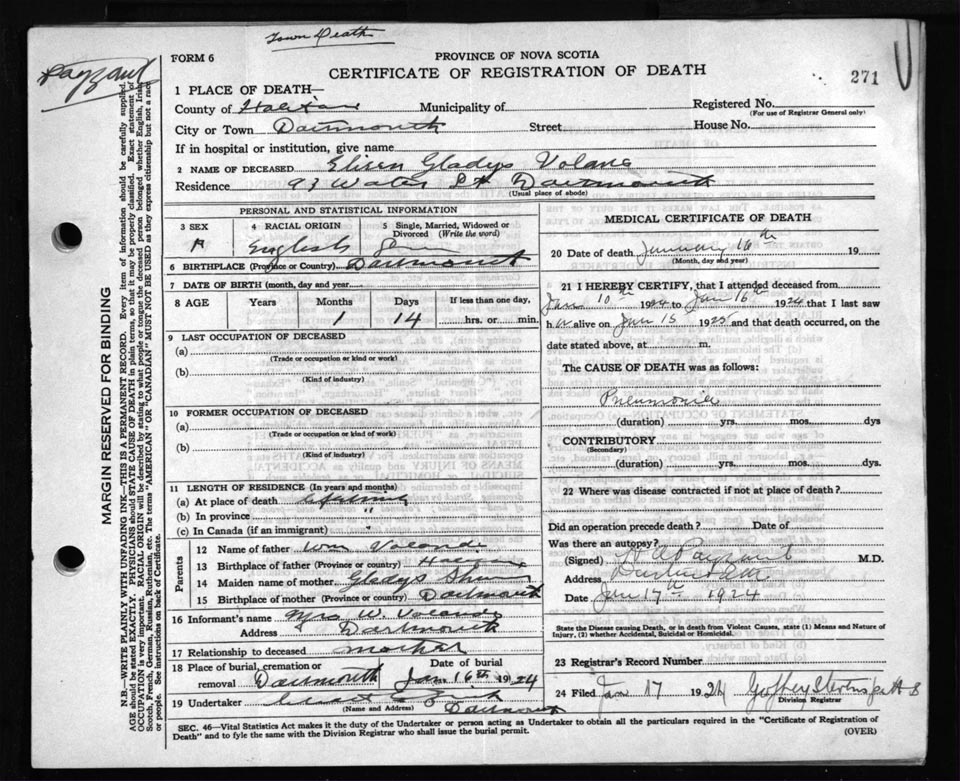 Town Death
Payzant
FORM 6
PROVINCE OF NOVA SCOTIA
CERTIFICATE OF REGISTRATION OF DEATH
271
1 PLACE OF DEATH—
County of Halifax Municipality of Registered No.
(For use of Registrar General only)
City or Town Dartmouth Street House No.
If in hospital or institution, give name
2 NAME OF DECEASED Gladys
Residence 93 Water St Dartmouth
(Usual place of abode)
PERSONAL AND STATISTICAL INFORMATION
3 SEX 4 RACIAL ORIGIN 5 Single, Married, Widowed or Divorced (Write the word)
English
6 BIRTHPLACE (Province or Country) Dartmouth
7 DATE OF BIRTH (month, day and year)
8 AGE Years Months Days If less than one day,
1 14 hrs. or min.
9 LAST OCCUPATION OF DECEASED
(a)
(Trade or occupation or kind or work)
(b)
(Kind of industry)
10 FORMER OCCUPATION OF DECEASED
(a)
(Trade or occupation or kind of work)
(b)
(Kind of industry)
11 LENGTH OF RESIDENCE (In years and months)
(a) At place of death Lifetime
(b) In province "
(c) In Canada (if an immigrant) "
Parents
12 Name of father Wm
13 Birthplace of father (Province or country)
14 Maiden name of mother Gladys
15 Birthplace of mother (Province or country) Dartmouth
16 Informant's name Mrs W.
Address Dartmouth
17 Relationship to deceased mother
18 Place of burial, cremation or removal Dartmouth Date of burial Jan 16th 1924
19 Undertaker
(Name and Address) Dartmouth
MEDICAL CERTIFICATE OF DEATH
20 Date of death January 16th 19
(Month, day and year)
21 I HEREBY CERTIFY, that I attended deceased from
Jan 10th 1924 to Jan 16th 1924 that I last saw
h alive on Jan 15 1925 and that death occurred, on the
date stated above, at m.
The CAUSE OF DEATH was as follows:
Pneumonia
(duration) yrs. mos. dys
CONTRIBUTORY
(Secondary)
(duration) yrs. mos. dys.
22 Where was disease contracted if not at place of death?
Did an operation precede death? Date of
Was there an autopsy?
(Signed) Payzant M.D.
Address Dartmouth
Date Jan 17th 1924
State the Disease causing Death, or in death from Violent Causes, state (1) Means and Nature of
Injury, (2) whether Accidental, Suicidal or Homicidal.
23 Registrar's Record Number
24 Filed Jan 17 1924
Division Registrar
SEC. 46—Vital Statistics Act makes it the duty of the Undertaker or person acting as Undertaker to obtain all the particulars required in the "Certificate of Registration of
Death" and to fyle the same with the Division Registrar who shall issue the burial permit.
(OVER)
MARGIN RESERVED FOR BINDING
N.B.—WRITE PLAINLY WITH UNFADING INK—THIS IS A PERMANENT RECORD. Every item of information should be carefully supplied.
AGE should be stated EXACTLY. PHYSICIANS should STATE CAUSE OF DEATH in plain terms, so that it may be properly classified. Exact statement of
OCCUPATION is very important. RACIAL ORIGIN will be described by stating to what people or tongue the deceased person belonged whether English, Irish,
Scotch, French, German, Russian, Ruthenian, etc. The terms "AMERICAN" OR "CANADIAN" MUST NOT BE USED as they express citizenship but not a race
of people. See instructions on back of Certificate.